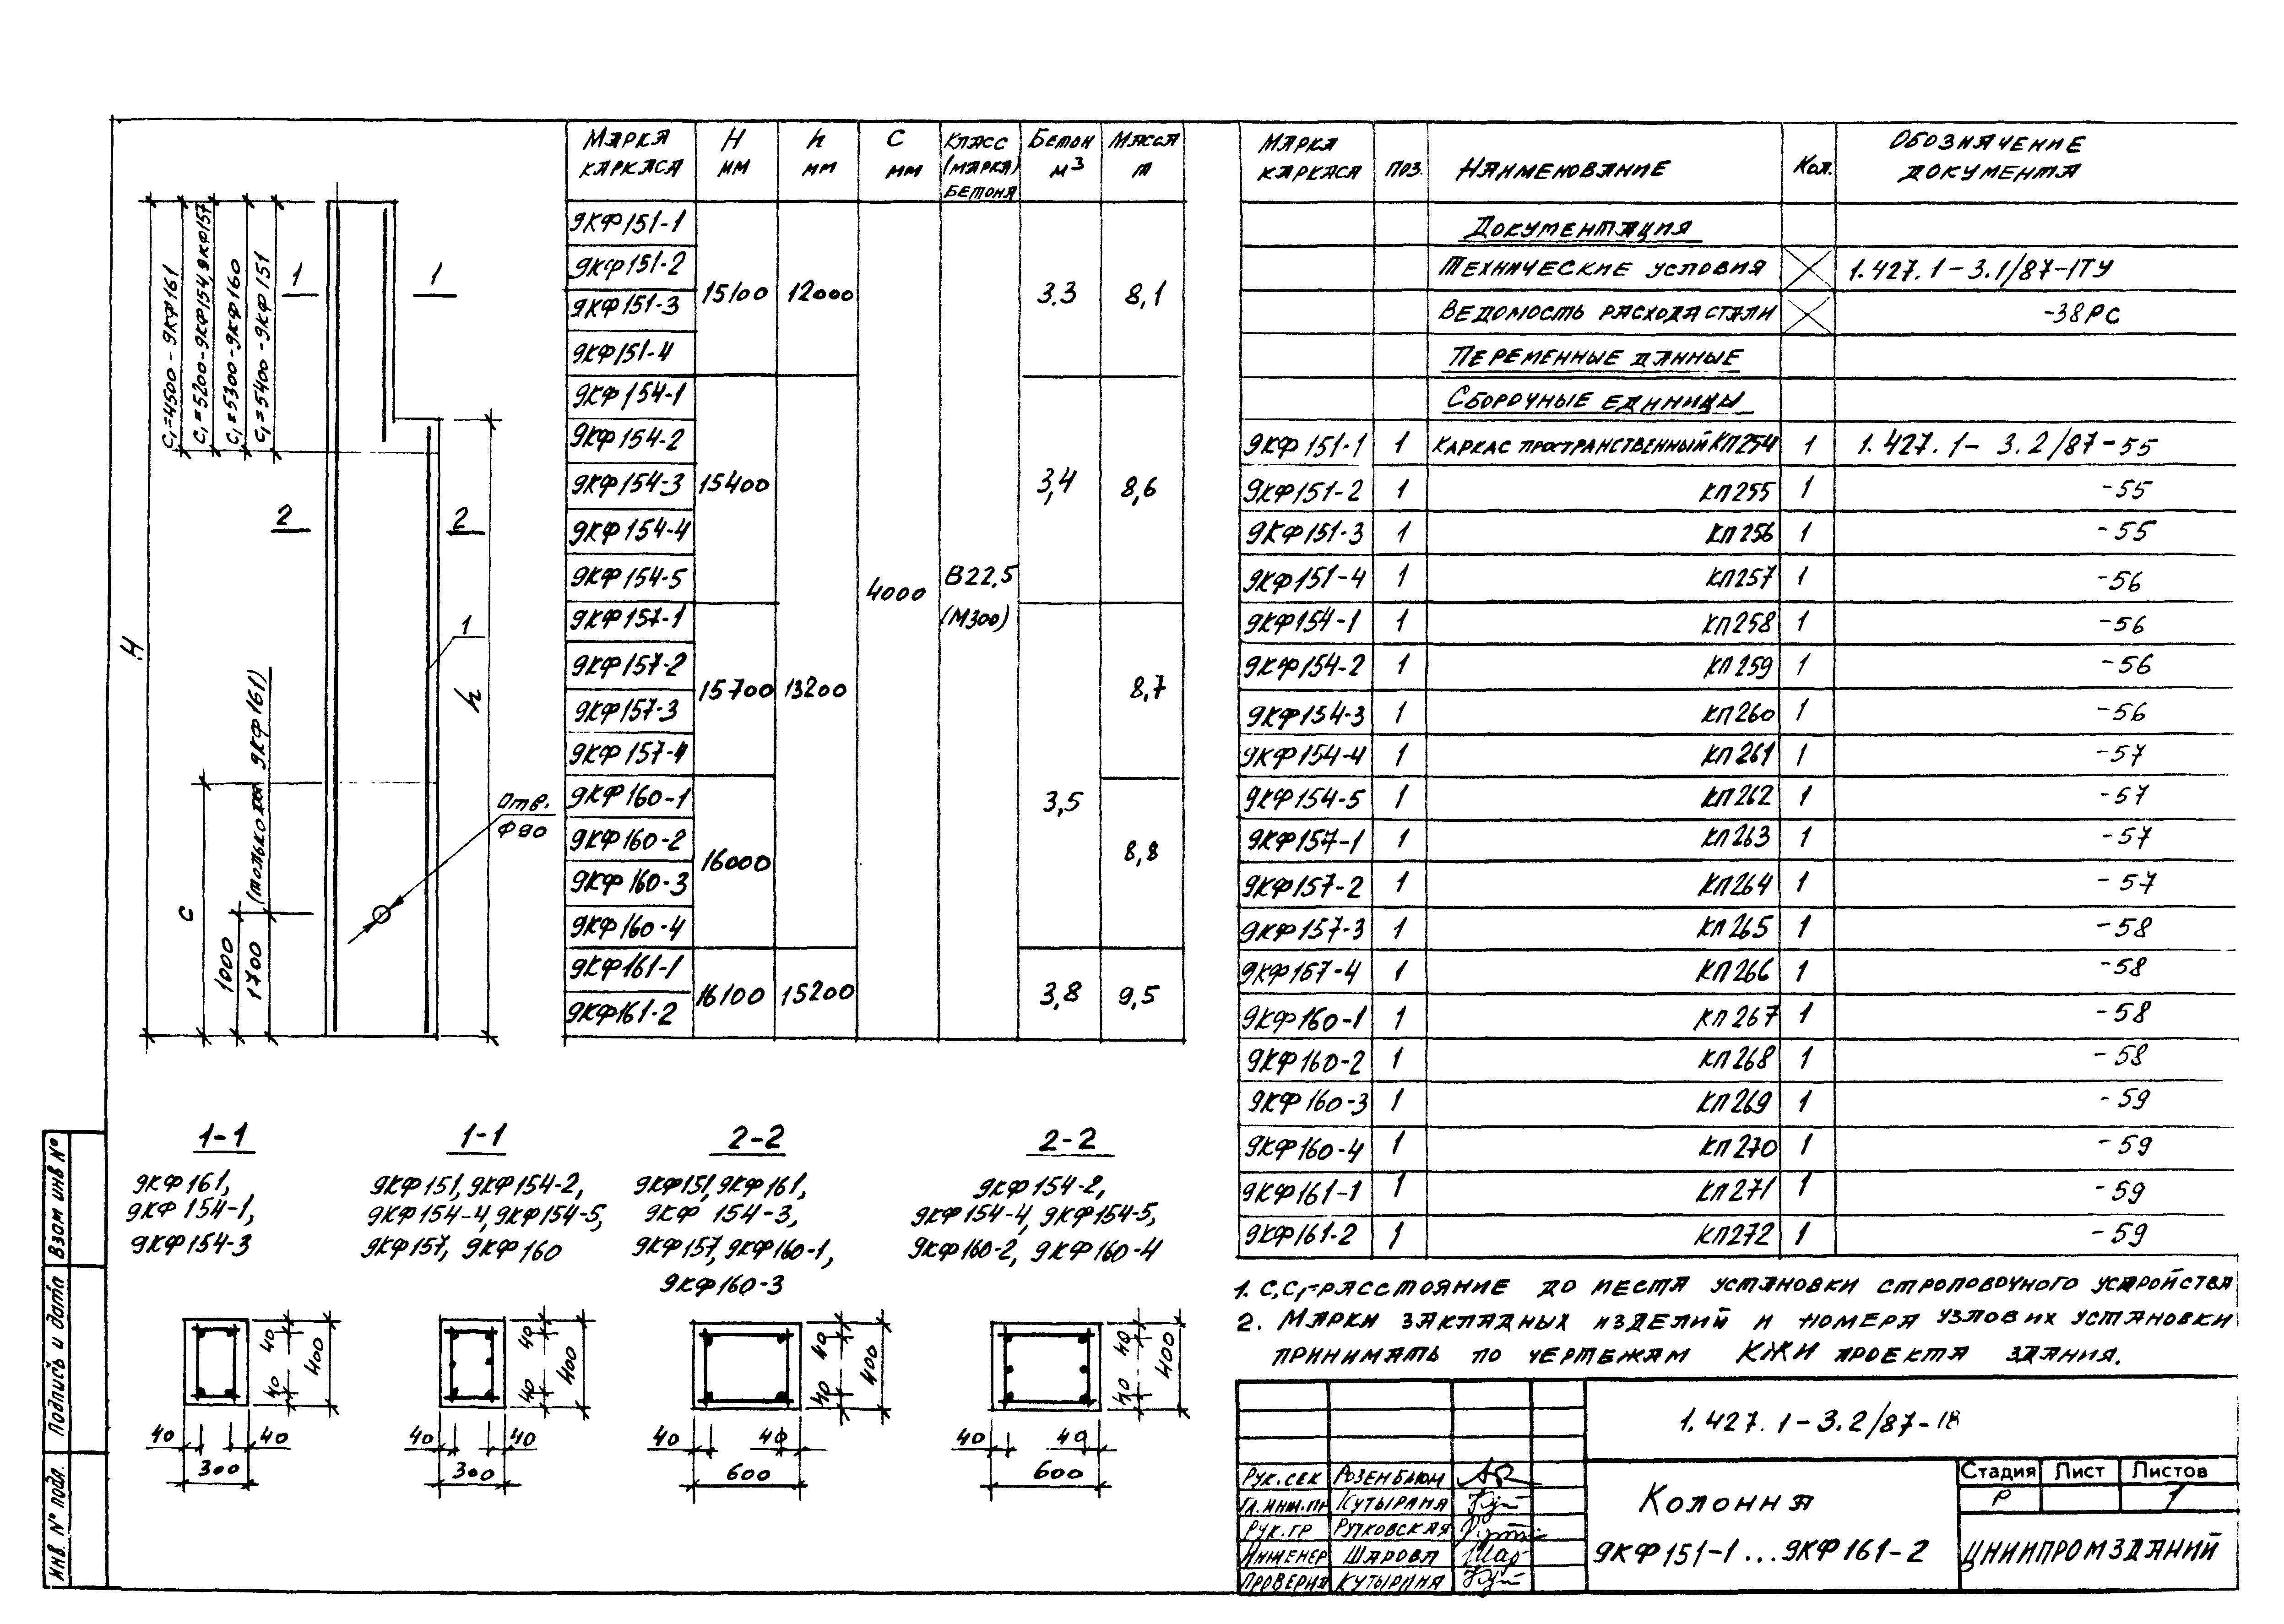 C₁=4500 - 9КФ161
C₁=5200-9КФ154,9КФ157
C₁=5300-9КФ160
C₁=5400-9КФ151
1 1
2 2
1
H
h
C
1000
1700 (только для 9КФ161)
Отв.
Ф90
Марка каркаса | H мм | h мм | C мм | Класс (марка) бетона | Бетон м³ | Масса т
9КФ151-1
9КФ151-2
9КФ151-3 | 15100 | 12000 | 3.3 | 8,1
9КФ151-4
9КФ154-1
9КФ154-2
9КФ154-3 | 15400 | 3,4 | 8,6
9КФ154-4
9КФ154-5 | 4000 | В22,5
9КФ157-1 | (М300)
9КФ157-2
9КФ157-3 | 15700 | 13200 | 8,7
9КФ157-4
9КФ160-1 | 3,5
9КФ160-2
9КФ160-3 | 16000 | 8,8
9КФ160-4
9КФ161-1
9КФ161-2 | 16100 | 15200 | 3,8 | 9,5
Марка каркаса | Поз. | Наименование | Кол. | Обозначение документа
Документация
Технические условия | 1.427.1-3.1/87-1ТУ
Ведомость расхода стали | -38РС
Переменные данные
Сборочные единицы
9КФ151-1 | 1 | Каркас пространственный КП254 | 1 | 1.427.1-3.2/87-55
9КФ151-2 | 1 | КП255 | 1 | -55
9КФ151-3 | 1 | КП256 | 1 | -55
9КФ151-4 | 1 | КП257 | 1 | -56
9КФ154-1 | 1 | КП258 | 1 | -56
9КФ154-2 | 1 | КП259 | 1 | -56
9КФ154-3 | 1 | КП260 | 1 | -56
9КФ154-4 | 1 | КП261 | 1 | -57
9КФ154-5 | 1 | КП262 | 1 | -57
9КФ157-1 | 1 | КП263 | 1 | -57
9КФ157-2 | 1 | КП264 | 1 | -57
9КФ157-3 | 1 | КП265 | 1 | -58
9КФ157-4 | 1 | КП266 | 1 | -58
9КФ160-1 | 1 | КП267 | 1 | -58
9КФ160-2 | 1 | КП268 | 1 | -58
9КФ160-3 | 1 | КП269 | 1 | -59
9КФ160-4 | 1 | КП270 | 1 | -59
9КФ161-1 | 1 | КП271 | 1 | -59
9КФ161-2 | 1 | КП272 | 1 | -59
1-1
9КФ161,
9КФ154-1,
9КФ154-3
40 40 400
40 40
300
1-1
9КФ151, 9КФ154-2,
9КФ154-4, 9КФ154-5,
9КФ157, 9КФ160
40 40 400
40 40
300
2-2
9КФ151, 9КФ161,
9КФ 154-3,
9КФ157, 9КФ160-1,
9КФ160-3
40 40 400
40 40
600
2-2
9КФ154-2,
9КФ154-4, 9КФ154-5,
9КФ160-2, 9КФ160-4
40 40 400
40 40
600
1. C, C₁-расстояние до места установки строповочного устройства
2. Марки закладных изделий и номера узлов их установки
принимать по чертежам КЖИ проекта здания.
1.427.1-3.2/87-18
Рук.сек Розенблюм
Гл.инж.пр Кутырина
Рук.гр Рутковская
Инженер Шарова
Проверил Кутырина
Колонна
9КФ151-1...9КФ161-2
Стадия | Лист | Листов
Р | | 1
ЦНИИПРОМЗДАНИЙ
Взам инв №
Подпись и дата
Инв. № подл.